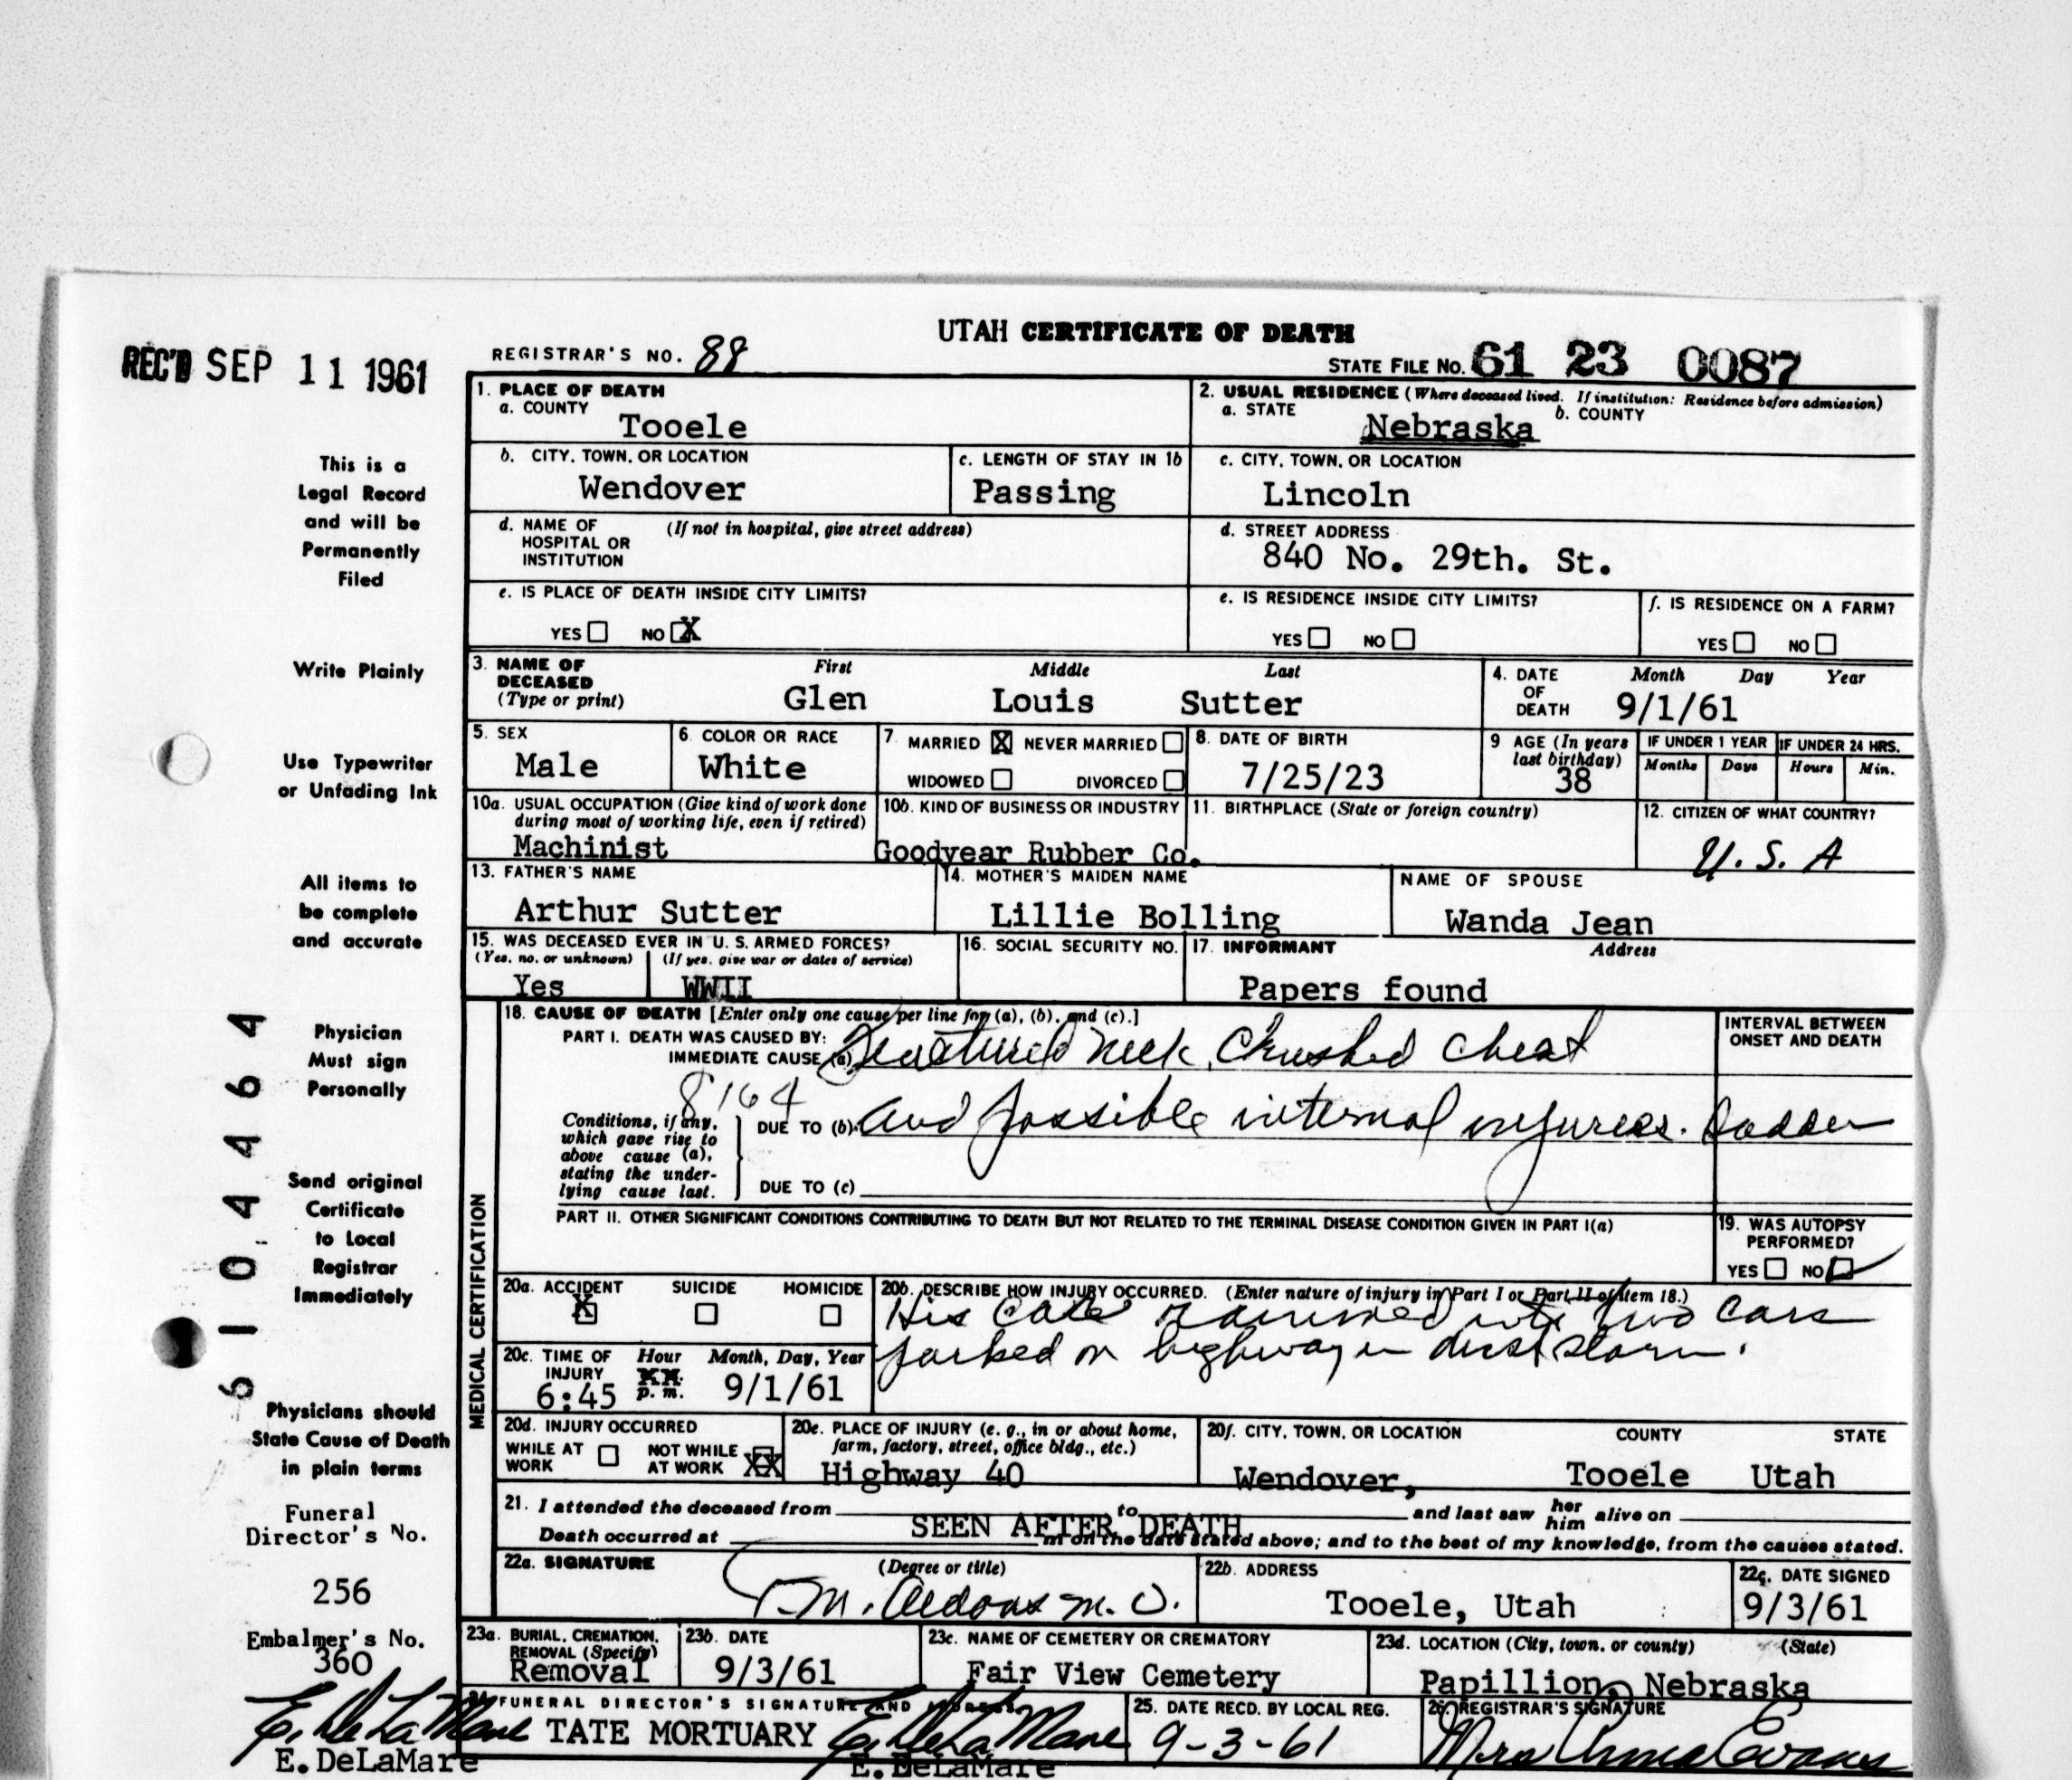 UTAH CERTIFICATE OF DEATH
REC'D SEP 11 1961
REGISTRAR'S NO. 88
STATE FILE No. 61 23 0087
1. PLACE OF DEATH
a. COUNTY
Tooele
2. USUAL RESIDENCE (Where deceased lived. If institution: Residence before admission)
a. STATE b. COUNTY
Nebraska
b. CITY, TOWN, OR LOCATION
Wendover
c. LENGTH OF STAY IN 1b
Passing
c. CITY, TOWN, OR LOCATION
Lincoln
d. NAME OF (If not in hospital, give street address)
HOSPITAL OR
INSTITUTION
d. STREET ADDRESS
840 No. 29th. St.
e. IS PLACE OF DEATH INSIDE CITY LIMITS?
YES NO X
e. IS RESIDENCE INSIDE CITY LIMITS?
YES NO
f. IS RESIDENCE ON A FARM?
YES NO
3. NAME OF DECEASED (Type or print)
First Middle Last
Glen Louis Sutter
4. DATE OF DEATH Month Day Year
9/1/61
5. SEX
Male
6. COLOR OR RACE
White
7. MARRIED X NEVER MARRIED
WIDOWED DIVORCED
8. DATE OF BIRTH
7/25/23
9 AGE (In years last birthday)
38
IF UNDER 1 YEAR IF UNDER 24 HRS.
Months Days Hours Min.
10a. USUAL OCCUPATION (Give kind of work done
during most of working life, even if retired)
Machinist
10b. KIND OF BUSINESS OR INDUSTRY
Goodyear Rubber Co.
11. BIRTHPLACE (State or foreign country)
12. CITIZEN OF WHAT COUNTRY?
U. S. A
13. FATHER'S NAME
Arthur Sutter
14. MOTHER'S MAIDEN NAME
Lillie Bolling
NAME OF SPOUSE
Wanda Jean
15. WAS DECEASED EVER IN U. S. ARMED FORCES?
(Yes, no, or unknown) (If yes, give war or dates of service)
Yes WWII
16. SOCIAL SECURITY NO.
17. INFORMANT Address
Papers found
MEDICAL CERTIFICATION
18. CAUSE OF DEATH [Enter only one cause per line for (a), (b), and (c).]
PART I. DEATH WAS CAUSED BY:
IMMEDIATE CAUSE (a) Fractured neck, Crushed chest
8164
Conditions, if any,
which gave rise to
above cause (a),
stating the under-
lying cause last.
DUE TO (b) and possible internal injuries.
DUE TO (c)
INTERVAL BETWEEN
ONSET AND DEATH
Sudden
PART II. OTHER SIGNIFICANT CONDITIONS CONTRIBUTING TO DEATH BUT NOT RELATED TO THE TERMINAL DISEASE CONDITION GIVEN IN PART I(a)
19. WAS AUTOPSY
PERFORMED?
YES NO
20a. ACCIDENT SUICIDE HOMICIDE
X
20b. DESCRIBE HOW INJURY OCCURRED. (Enter nature of injury in Part I or Part II of item 18.)
His rammed into two cars
parked on highway in dust storm.
20c. TIME OF INJURY Hour Month, Day, Year
6:45 p. m. 9/1/61
20d. INJURY OCCURRED
WHILE AT WORK NOT WHILE AT WORK XX
20e. PLACE OF INJURY (e. g., in or about home,
farm, factory, street, office bldg., etc.)
Highway 40
20f. CITY, TOWN, OR LOCATION COUNTY STATE
Wendover, Tooele Utah
21. I attended the deceased from to and last saw her him alive on
SEEN AFTER DEATH
Death occurred at m on the date stated above; and to the best of my knowledge, from the causes stated.
22a. SIGNATURE (Degree or title)
T. M. Aldous M. D.
22b. ADDRESS
Tooele, Utah
22c. DATE SIGNED
9/3/61
23a. BURIAL, CREMATION,
REMOVAL (Specify)
Removal
23b. DATE
9/3/61
23c. NAME OF CEMETERY OR CREMATORY
Fair View Cemetery
23d. LOCATION (City, town, or county) (State)
Papillion, Nebraska
24. FUNERAL DIRECTOR'S SIGNATURE AND ADDRESS
TATE MORTUARY E. DeLaMare
E. DeLaMare
25. DATE RECD. BY LOCAL REG.
9-3-61
26. REGISTRAR'S SIGNATURE
Mrs Anna Evans
This is a
Legal Record
and will be
Permanently
Filed
Write Plainly
Use Typewriter
or Unfading Ink
All items to
be complete
and accurate
Physician
Must sign
Personally
Send original
Certificate
to Local
Registrar
Immediately
Physicians should
State Cause of Death
in plain terms
Funeral
Director's No.
256
Embalmer's No.
360
E. DeLaMare
E. DeLaMare
6104464